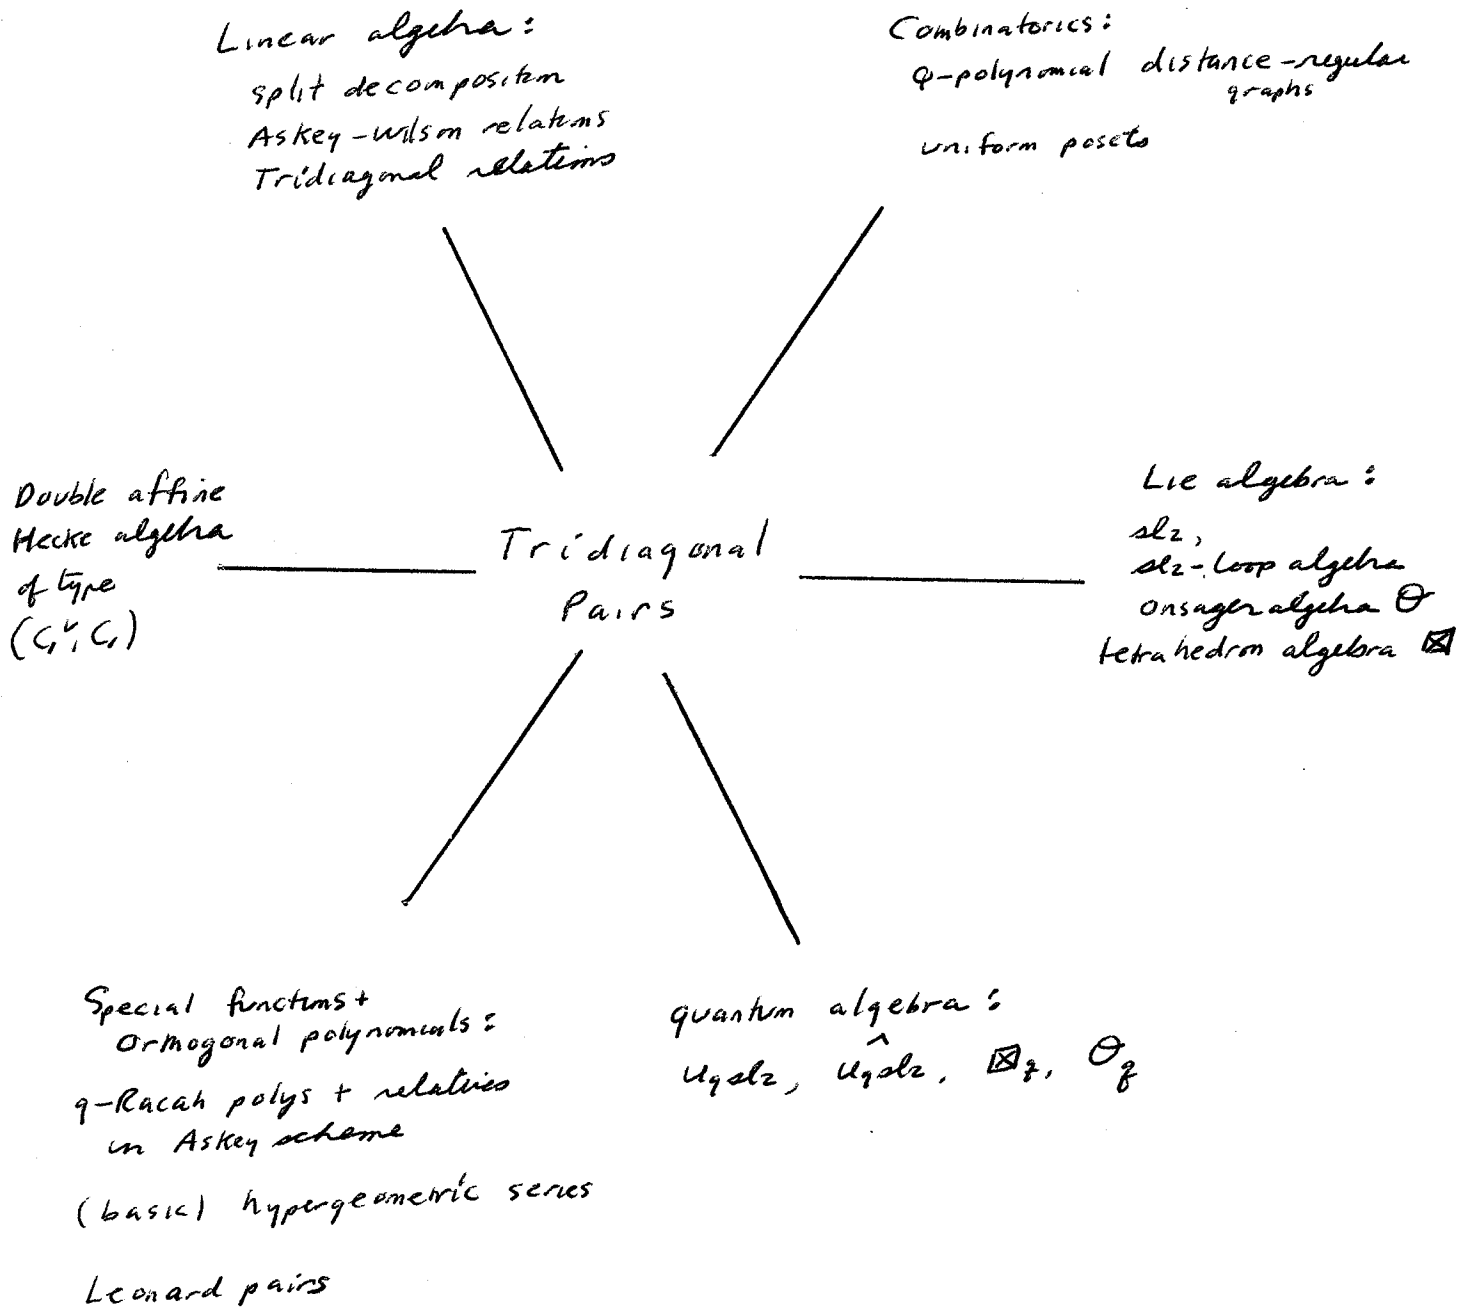 Linear algebra:
split decomposition
Askey-Wilson relations
Tridiagonal relations
Combinatorics:
Q-polynomial distance-regular
graphs
uniform posets
Double affine
Hecke algebra
of type
(C₁ᵛ, C₁)
Tridiagonal
Pairs
Lie algebra:
sl₂,
sl₂-loop algebra
Onsager algebra O
tetrahedron algebra ⊠
Special functions +
Orthogonal polynomials:
q-Racah polys + relatives
in Askey scheme
(basic) hypergeometric series
Leonard pairs
quantum algebra:
U_q sl₂, U_q ŝl₂, ⊠_q, O_q